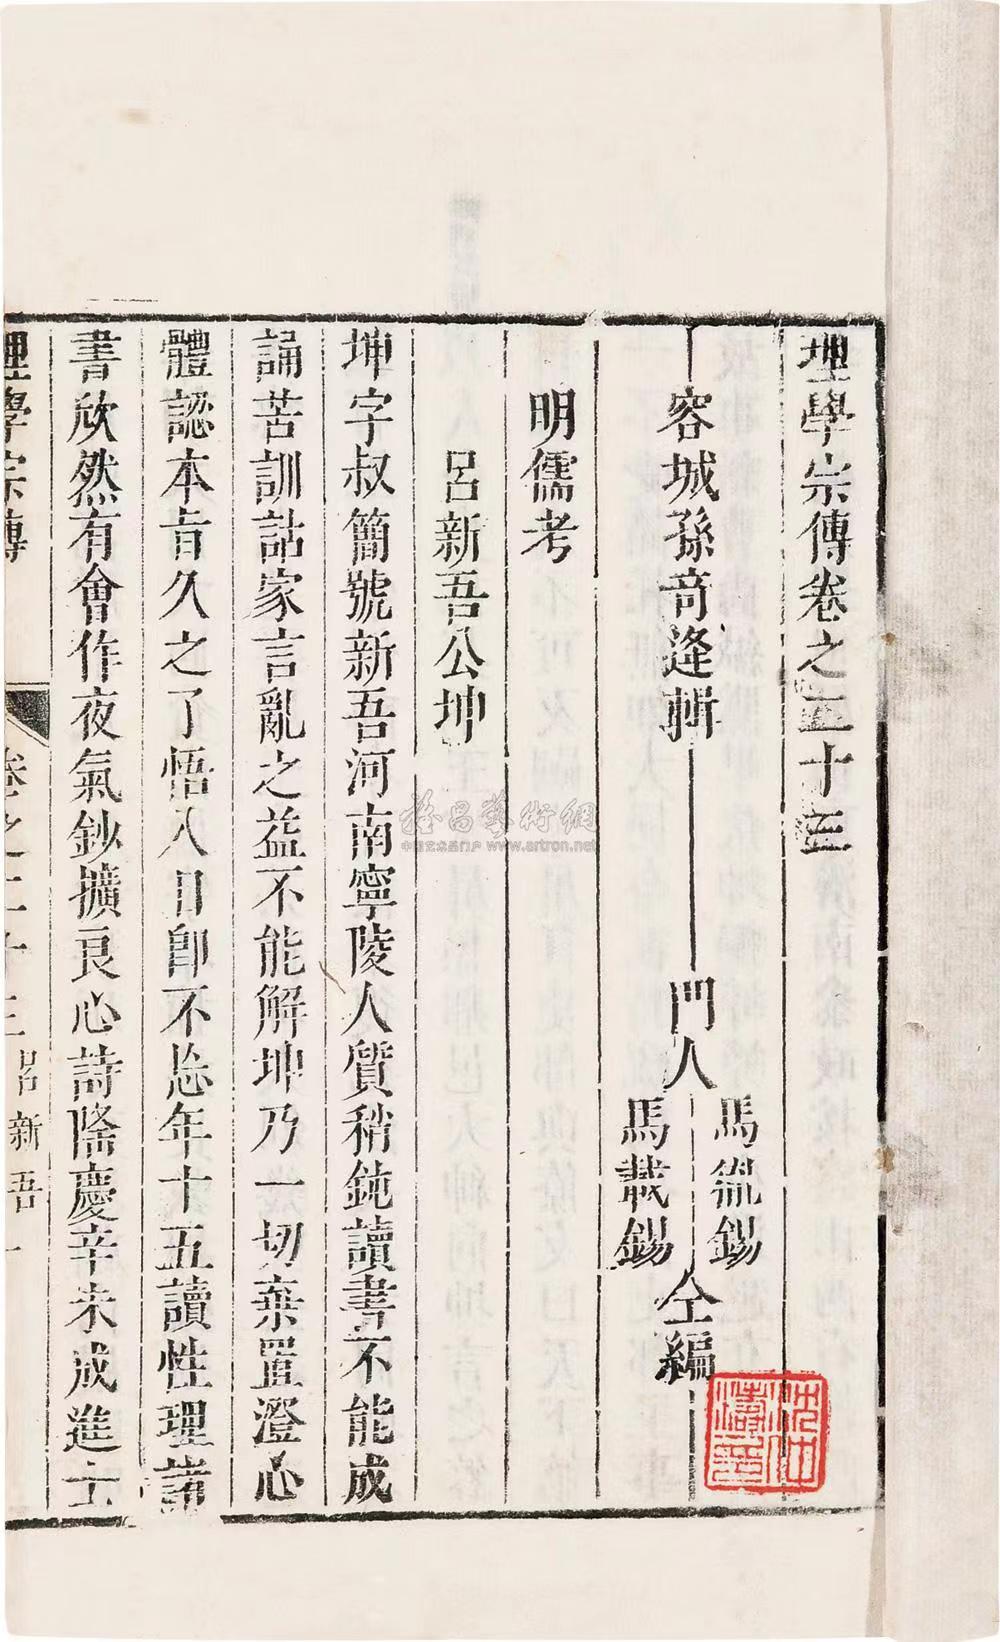 理學宗傳卷之二十三
容城孫奇逢輯
門人
馬胤錫
馬載錫
仝編
明儒考
呂新吾公坤
坤字叔簡號新吾河南寧陵人質稍鈍讀書不能成
誦苦訓詁家言亂之益不能解坤乃一切棄置澄心
體認本旨久之了悟入目卽不忘年十五讀性理諸
書欣然有會作夜氣鈔擴良心詩隆慶辛未成進士
理學宗傳
卷之二十三
呂新吾
一
雅昌藝術網
中国艺术品门户 www.artron.net